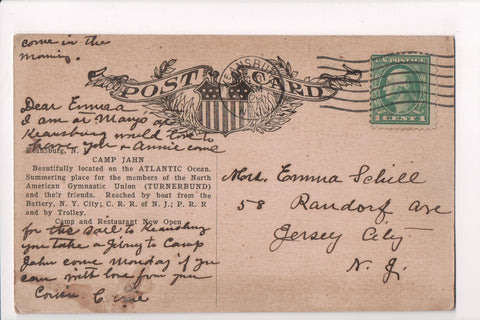 come in the
morning.
POST CARD
KEANSBURG
U.S. POSTAGE
1 CENT 1
Dear Emma
I am at May's at
Keansburg would love to
have you & Annie come
Keansburg, N. J.
CAMP JAHN
Beautifully located on the ATLANTIC Ocean.
Summering place for the members of the North
American Gymnastic Union (TURNERBUND)
and their friends. Reached by boat from the
Battery, N. Y. City; C. R. R. of N. J.; P. R. R
and by Trolley.
Camp and Restaurant Now Open
for the sail to Keansburg
you take a Jitney to Camp
Jahn come Monday if you
can with love from your
Cousin
Mrs. Emma Schill
58 Randorf Ave
Jersey City
N. J.